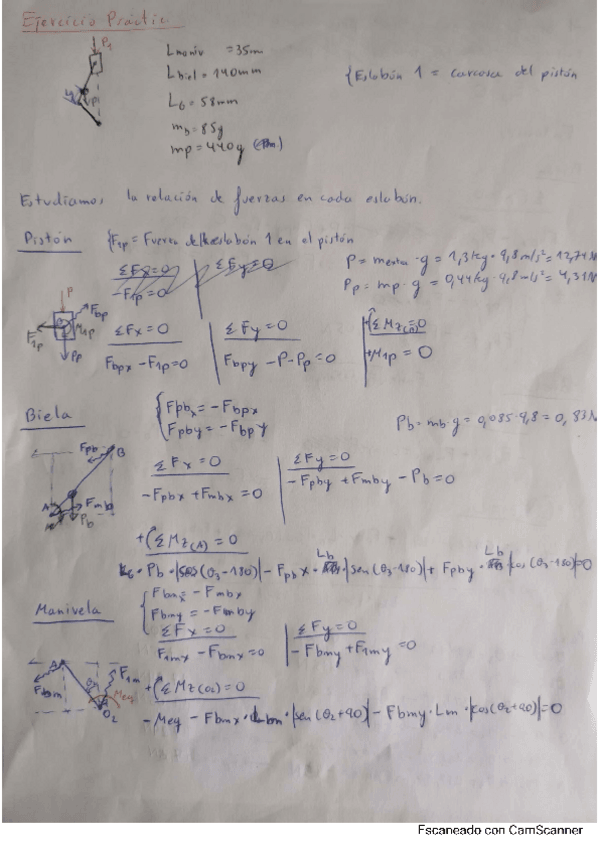 Ejercicio Práctic
P1
Lmaniv = 35m
Lbiel = 140mm
L6 = 58mm
mb = 85g
mp = 440g
{Eslabón 1 = carcasa del pistón
Estudiamos la relación de fuerzas en cada eslabón.
Pistón
{F1p = Fuerza del eslabón 1 en el pistón
ΣFx = 0
ΣFy = 0
-F1p = 0
P = · g = 1,3kg · 9,8 m/s² = 12,74N
Pp = mp · g = 0,44kg · 9,8 m/s² = 4,31N
P
Fbp
F1p
M1p
Pp
ΣFx = 0
ΣFy = 0
ΣMz(A) = 0
Fbpx - F1p = 0
Fbpy - P - Pp = 0
+M1p = 0
Biela
{Fpbx = -Fbpx
Fpby = -Fbpy
Pb = mb · g = 0,085 · 9,8 = 0,83N
Fpb
B
A
Fmb
Pb
ΣFx = 0
ΣFy = 0
-Fpbx + Fmbx = 0
-Fpby + Fmby - Pb = 0
+(ΣMz(A) = 0
L6 · Pb · |cos(θ3-180)| - Fpbx · Lb · |sen(θ3-180)| + Fpby · Lb · |cos(θ3-180)| = 0
Manivela
{Fbmx = -Fmbx
Fbmy = -Fmby
ΣFx = 0
ΣFy = 0
F1mx - Fbmx = 0
-Fbmy + F1my = 0
A
Fbm
F1m
Meq
O2
+(ΣMz(O2) = 0
-Meq - Fbmx · Lm · |sen(θ2+90)| - Fbmy · Lm · |cos(θ2+90)| = 0
Escaneado con CamScanner